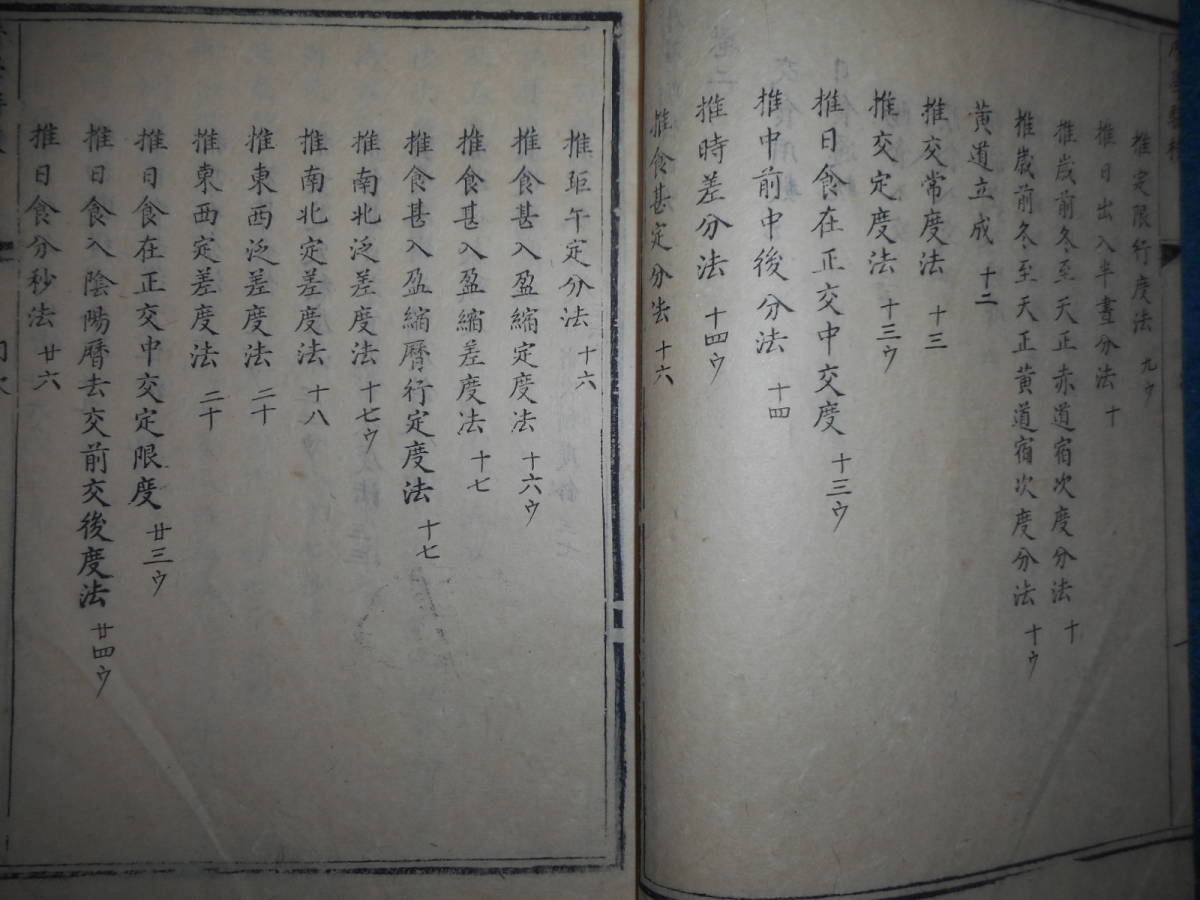 推定限行度法 九ウ
推日出入半晝分法 十
推歲前冬至天正赤道宿次度分法 十
推歲前冬至天正黄道宿次度分法 十ウ
黄道立成 十二
推交常度法 十三
推交定度法 十三ウ
推日食在正交中交度 十三ウ
推中前中後分法 十四
推時差分法 十四ウ
推食甚定分法 十六
推距午定分法 十六
推食甚入盈縮定度法 十六ウ
推食甚入盈縮差度法 十七
推食甚入盈縮暦行定度法 十七
推南北泛差度法 十七ウ
推南北定差度法 十八
推東西泛差度法 二十
推東西定差度法 二十
推日食在正交中交定限度 廿三ウ
推日食入陰陽暦去交前交後度法 廿四ウ
推日食分秒法 廿六